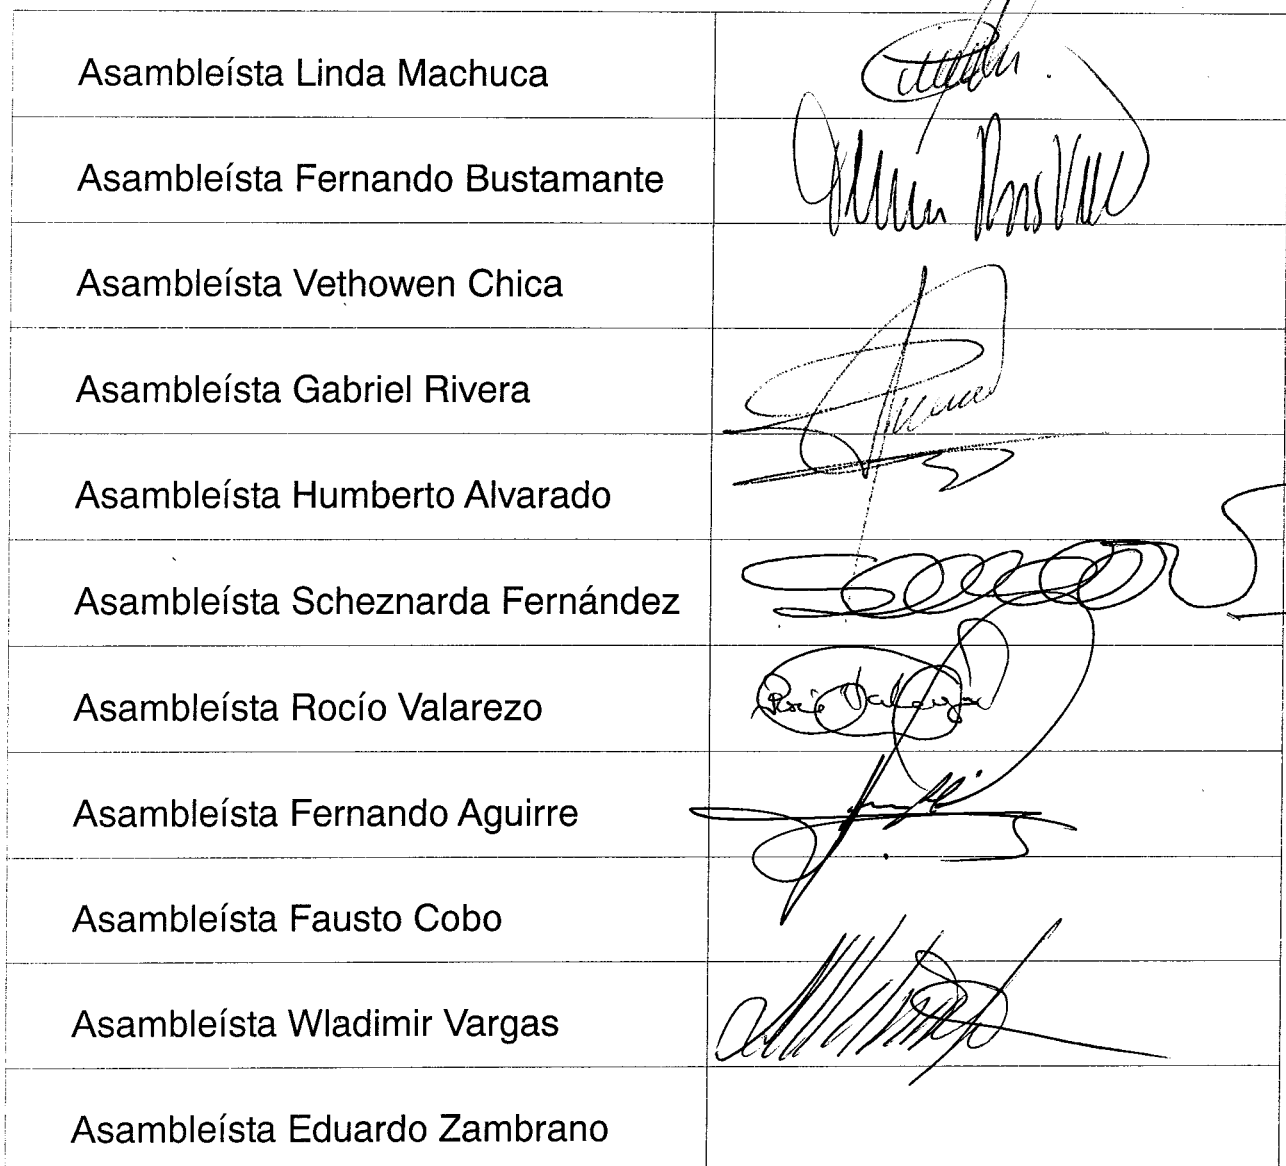 Asambleísta Linda Machuca
Asambleísta Fernando Bustamante
Asambleísta Vethowen Chica
Asambleísta Gabriel Rivera
Asambleísta Humberto Alvarado
Asambleísta Scheznarda Fernández
Asambleísta Rocío Valarezo
Asambleísta Fernando Aguirre
Asambleísta Fausto Cobo
Asambleísta Wladimir Vargas
Asambleísta Eduardo Zambrano